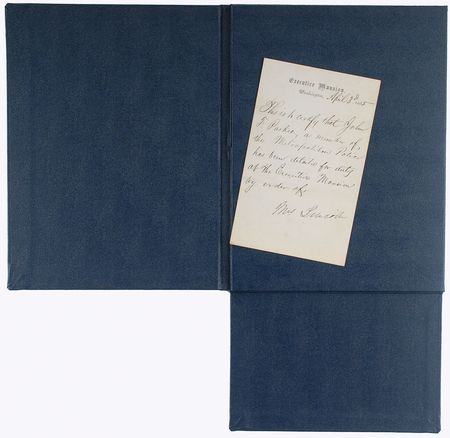 Executive Mansion,
Washington, April 3d 1865
This is to certify that John
F. Parker, a member of
the Metropolitan Police
has been detailed for duty
at the Executive Mansion
by order of,
Mrs Lincoln